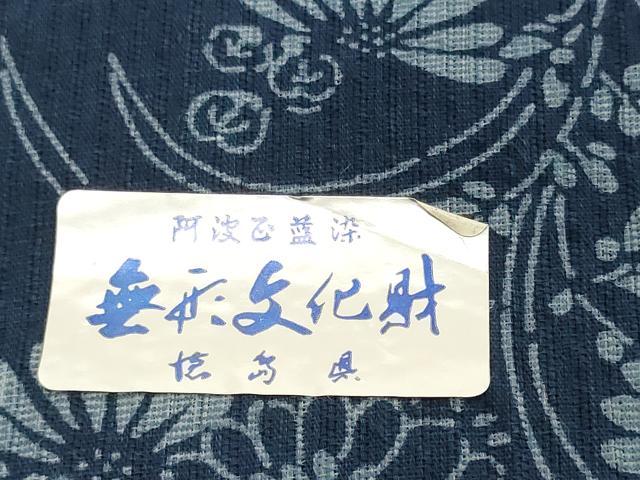 阿波正藍染
無形文化財
徳島県